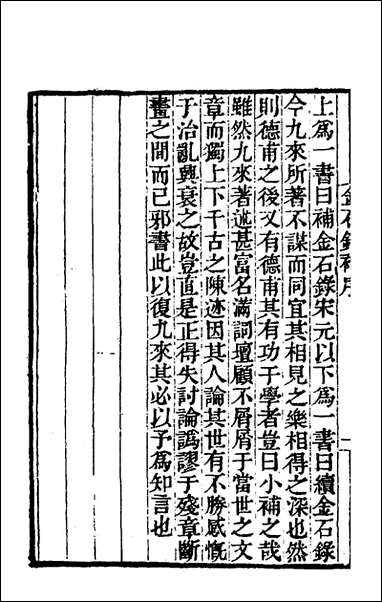 上爲一書曰補金石錄宋元以下爲一書曰續金石錄
今九來所著不謀而同宜其相見之樂相得之深也然
則德甫之後又有德甫其有功于學者豈曰小補之哉
雖然九來著述甚富名滿詞壇顧不屑屑于當世之文
章而獨上下千古之陳迹因其人論其世有不勝感慨
于治亂興衰之故豈直是正得失討論譌謬于殘章斷
畫之間而已邪書此以復九來其必以予爲知言也
金石錄補序
一